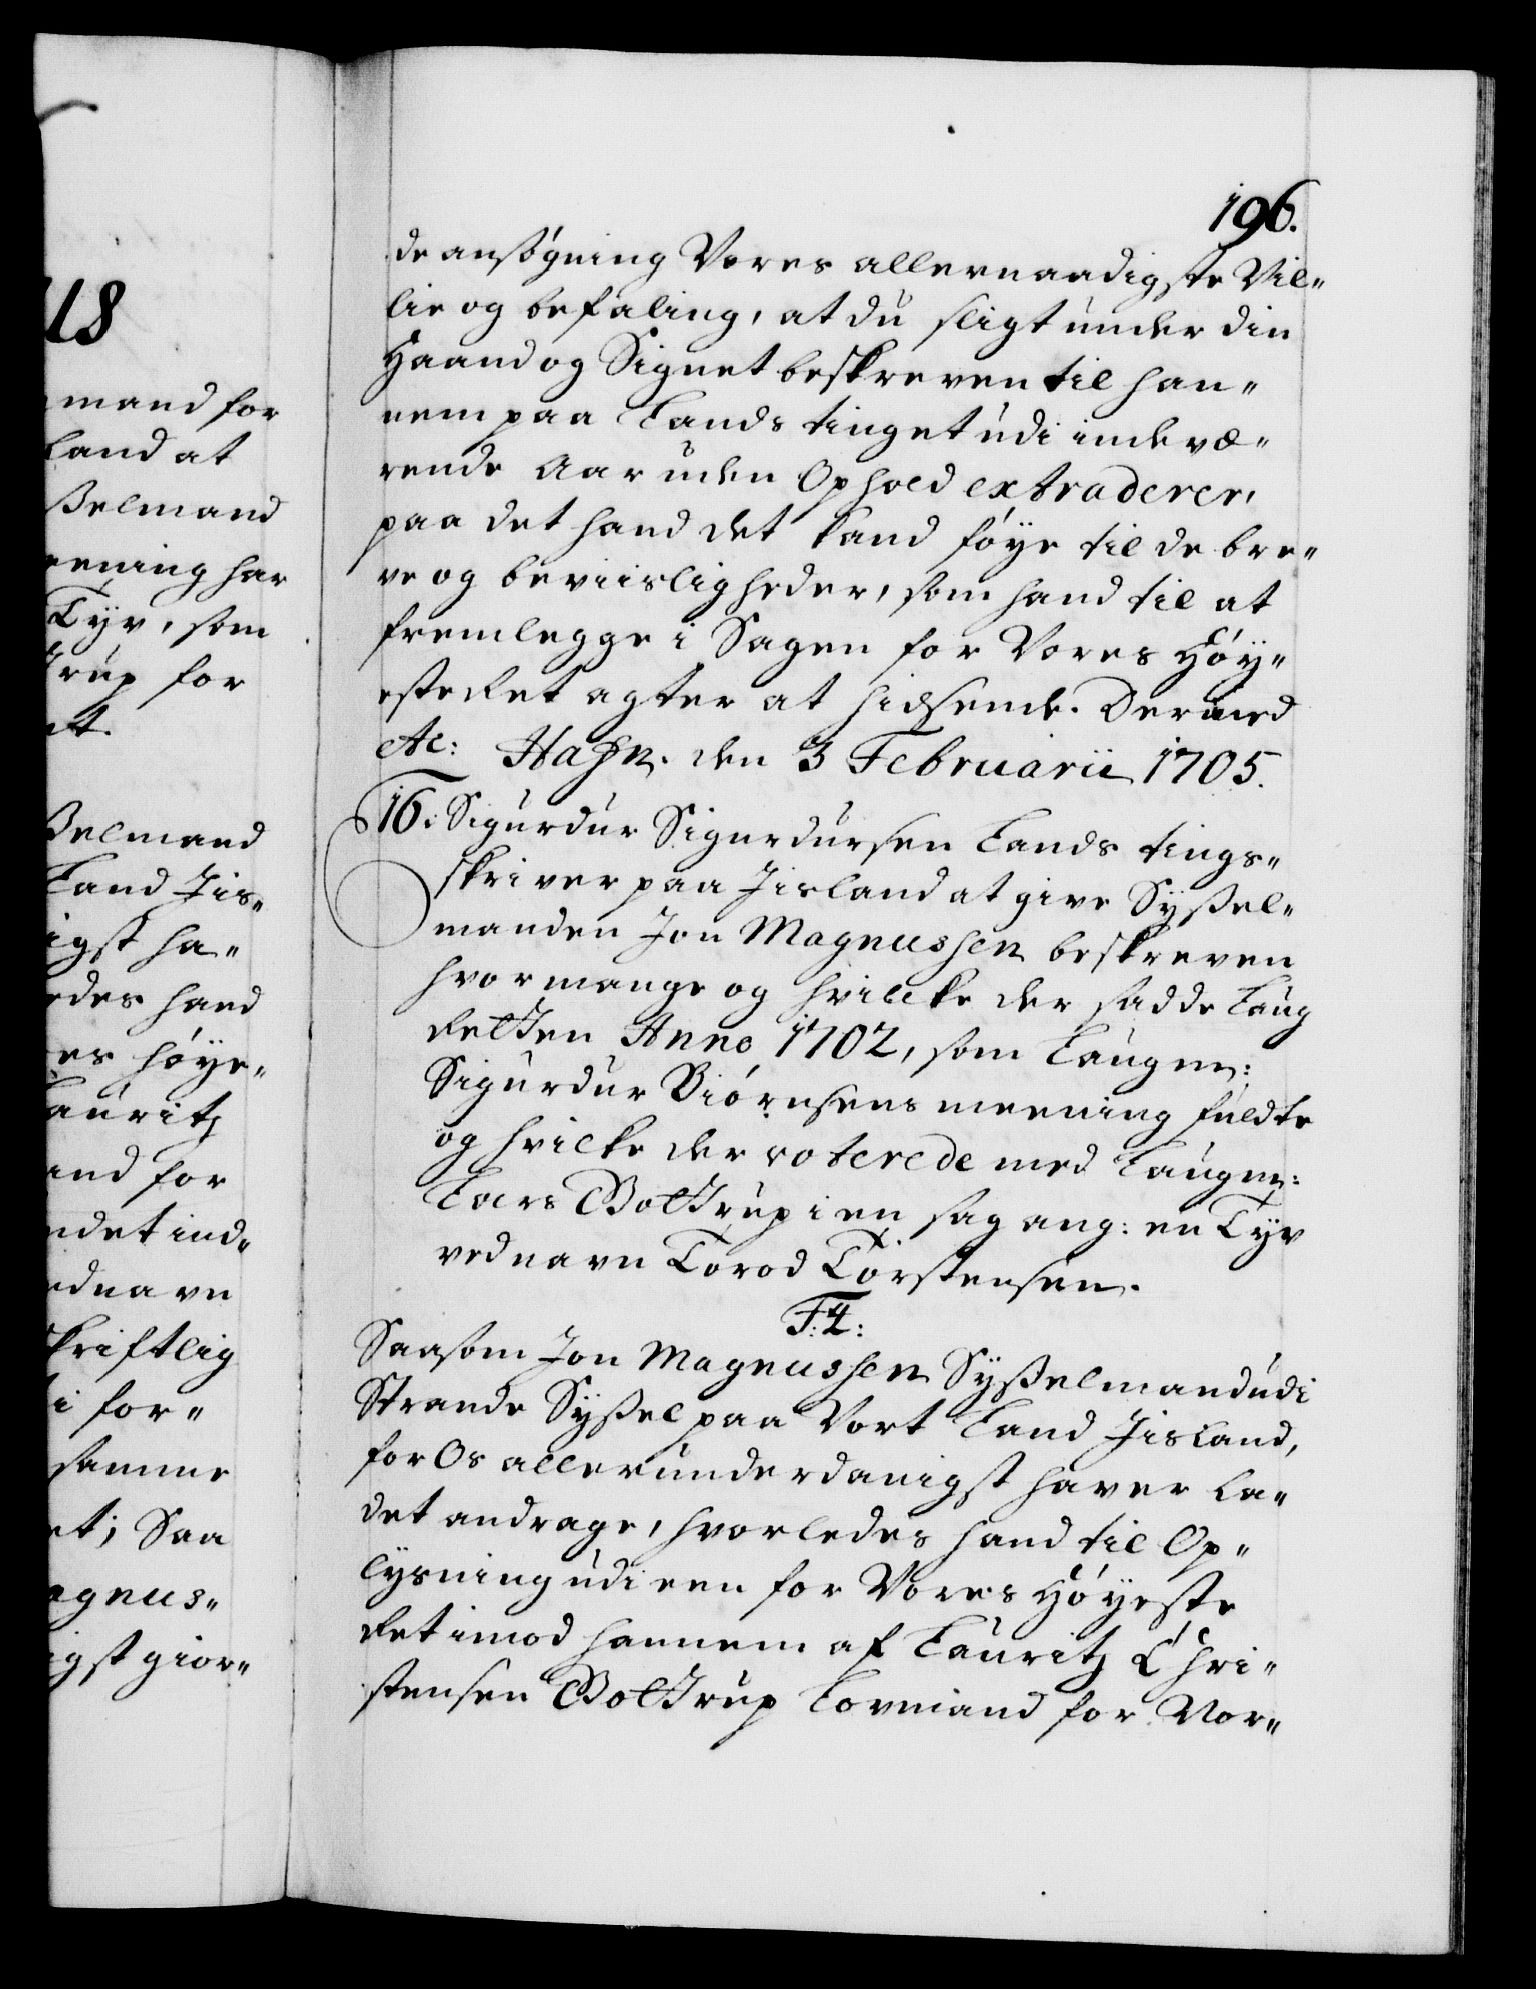 196.
de ansøgning Vores allernaadigste Vil„
lie og befaling, at du sligt under din
Haand og Signet beskreven til han„
nem paa Lands tinget udi indevæ„
rende Aar uden Ophold extraderer,
paa det hand det kand føye til de bre„
ve og beviisligheder, som hand til at
fremlegge i Sagen for Vores Høy„
esteRet agter at hidsende. Dermed
etc: Hafn. den 3 Februarii 1705.
16. Sigurdur Sigurdursen Lands tings„
skriver paa Jisland at give Syssel„
manden Jon Magnussen beskreven
hvor mange og hvilcke der sadde Laug
Retten Anno 1702, som Laugm:
Sigurdur Biørnsens meening fuldte
og hvilke der voterede med Laugm:
Lars Gottrup i en sag ang: en Tyv
ved navn Torod Torstensen.
F: 4:
Saasom Jon Magnussen Sysselmand udi
Strande Syssel paa Vort Land Jisland,
for Os allerunderdanigst haver la„
det andrage, hvorledes hand til Op„
lysning udi een for Vores Høyeste
Ret imod hannem af Lauritz Chri„
stensen Gottrup Lovmand for Vor„
118
mand for
Land at
sselmand
eening har
Tyv, som
trup for
et.
sselmand
Land Jis„
igst ha„
edes hand
es høye„
auritz
and for
ndet ind„
ednavn
kriftlig
i for„
samme
et; Saa
agnus„
igst gior„